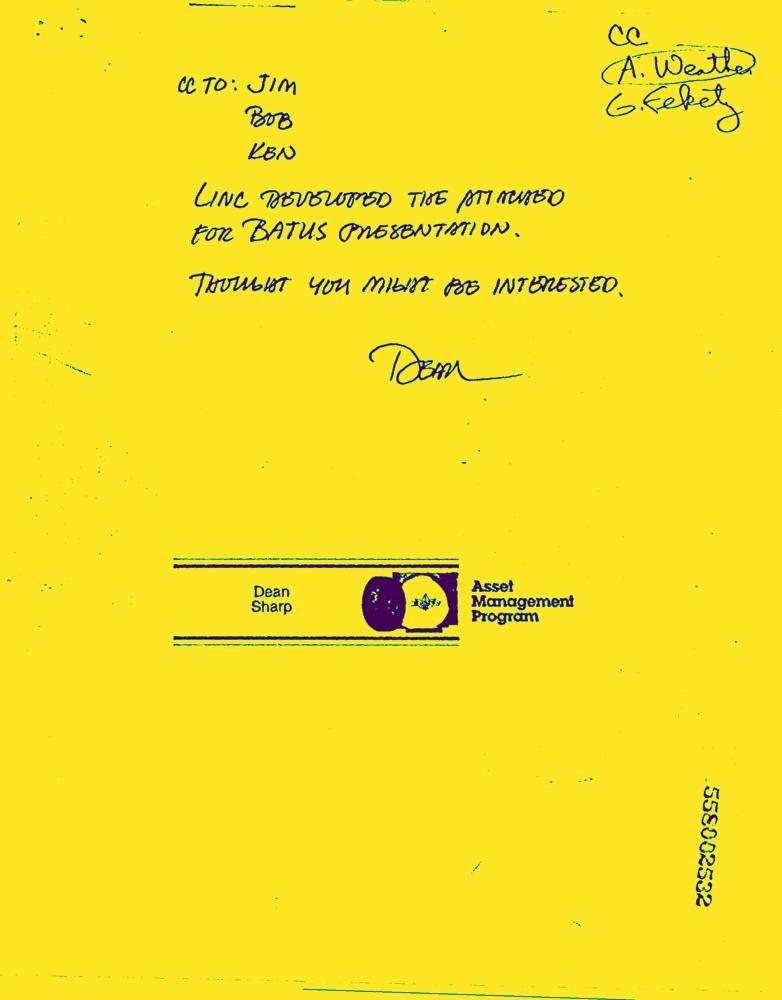 CC
A. Weather
G. Fekety
CC TO: JIM
BOB
KEN
LINC DEVELOPED THE ATTACHED
FOR BATUS PRESENTATION.
THOUGHT YOU MIGHT BE INTERESTED.
DEAN
Dean
Sharp
Asset
Management
Program
558002532